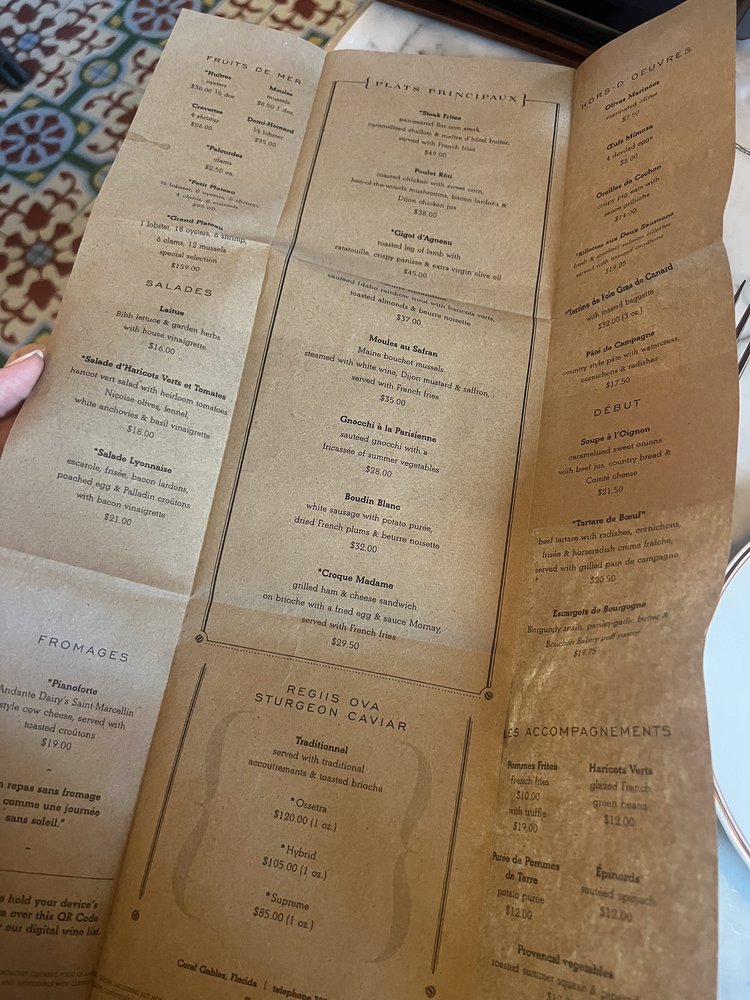 FRUITS DE MER
*Huîtres
oysters
$36.00 ½ doz
Moules
mussels
$8.50 ½ doz
Crevettes
4 shrimp
$26.00
Demi-Homard
½ lobster
$35.00
*Palourdes
clams
$2.50 ea.
*Petit Plateau
½ lobster, 8 oysters, 2 shrimp,
4 clams, 8 mussels
*Grand Plateau
1 lobster, 18 oysters, 6 shrimp,
6 clams, 12 mussels
special selection
$159.00
SALADES
Laitue
Bibb lettuce & garden herbs
with house vinaigrette
$16.00
*Salade d'Haricots Verts et Tomates
haricot vert salad with heirloom tomatoes
Niçoise olives, fennel,
white anchovies & basil vinaigrette
$18.00
*Salade Lyonnaise
escarole, frisée, bacon lardons,
poached egg & Palladin croûtons
with bacon vinaigrette
$21.00
FROMAGES
*Pianoforte
Andante Dairy's Saint-Marcellin
style cow cheese, served with
toasted croûtons
$19.00
–
n repas sans fromage
comme une journée
sans soleil."
–
e hold your device's
over this QR Code
our digital wine list.
{ PLATS PRINCIPAUX }
*Steak Frites
pan-seared flat iron steak,
caramelized shallots & maître d'hôtel butter,
served with French fries
$49.00
Poulet Rôti
roasted chicken with sweet corn,
hen-of-the-woods mushrooms, bacon lardons &
Dijon chicken jus
$38.00
*Gigot d'Agneau
roasted leg of lamb with
ratatouille, crispy panisse & extra virgin olive oil
$45.00
sautéed Idaho rainbow trout with haricots verts,
toasted almonds & beurre noisette
$37.00
Moules au Safran
Maine bouchot mussels
steamed with white wine, Dijon mustard & saffron,
served with French fries
$35.00
Gnocchi à la Parisienne
sautéed gnocchi with a
fricassée of summer vegetables
$28.00
Boudin Blanc
white sausage with potato purée,
dried French plums & beurre noisette
$32.00
*Croque Madame
grilled ham & cheese sandwich
on brioche with a fried egg & sauce Mornay,
served with French fries
$29.50
REGIIS OVA
STURGEON CAVIAR
Traditionnel
served with traditional
accoutrements & toasted brioche
*Ossetra
$120.00 (1 oz.)
*Hybrid
$105.00 (1 oz.)
*Supreme
$85.00 (1 oz.)
Coral Gables, Florida | telephone
HORS-D'OEUVRES
Olives Marinées
marinated olives
$7.50
Œufs Mimosa
4 deviled eggs
$8.00
Oreilles de Cochon
crispy pig ears with
sauce gribiche
$14.00
*Rillettes aux Deux Saumons
fresh & smoked salmon rillettes
served with toasted croûtons
$19.25
*Terrine de Foie Gras de Canard
with toasted baguette
$32.00 (3 oz.)
Pâté de Campagne
country style pâté with watercress,
cornichons & radishes
$17.50
DÉBUT
Soupe à l'Oignon
caramelized sweet onions
with beef jus, country bread &
Comté cheese
$21.50
*Tartare de Bœuf*
beef tartare with radishes, cornichons,
frisée & horseradish creme fraîche,
served with grilled pain de campagne
$20.50
Escargots de Bourgogne
Burgundy snails, parsley-garlic butter, &
Bouchon Bakery puff pastry
$19.75
LES ACCOMPAGNEMENTS
Pommes Frites
french fries
$10.00
with truffle
$19.00
Haricots Verts
glazed French
green beans
$12.00
Purée de Pommes
de Terre
potato purée
$12.00
Épinards
sautéed spinach
$12.00
Provencal vegetables
roasted summer squash &